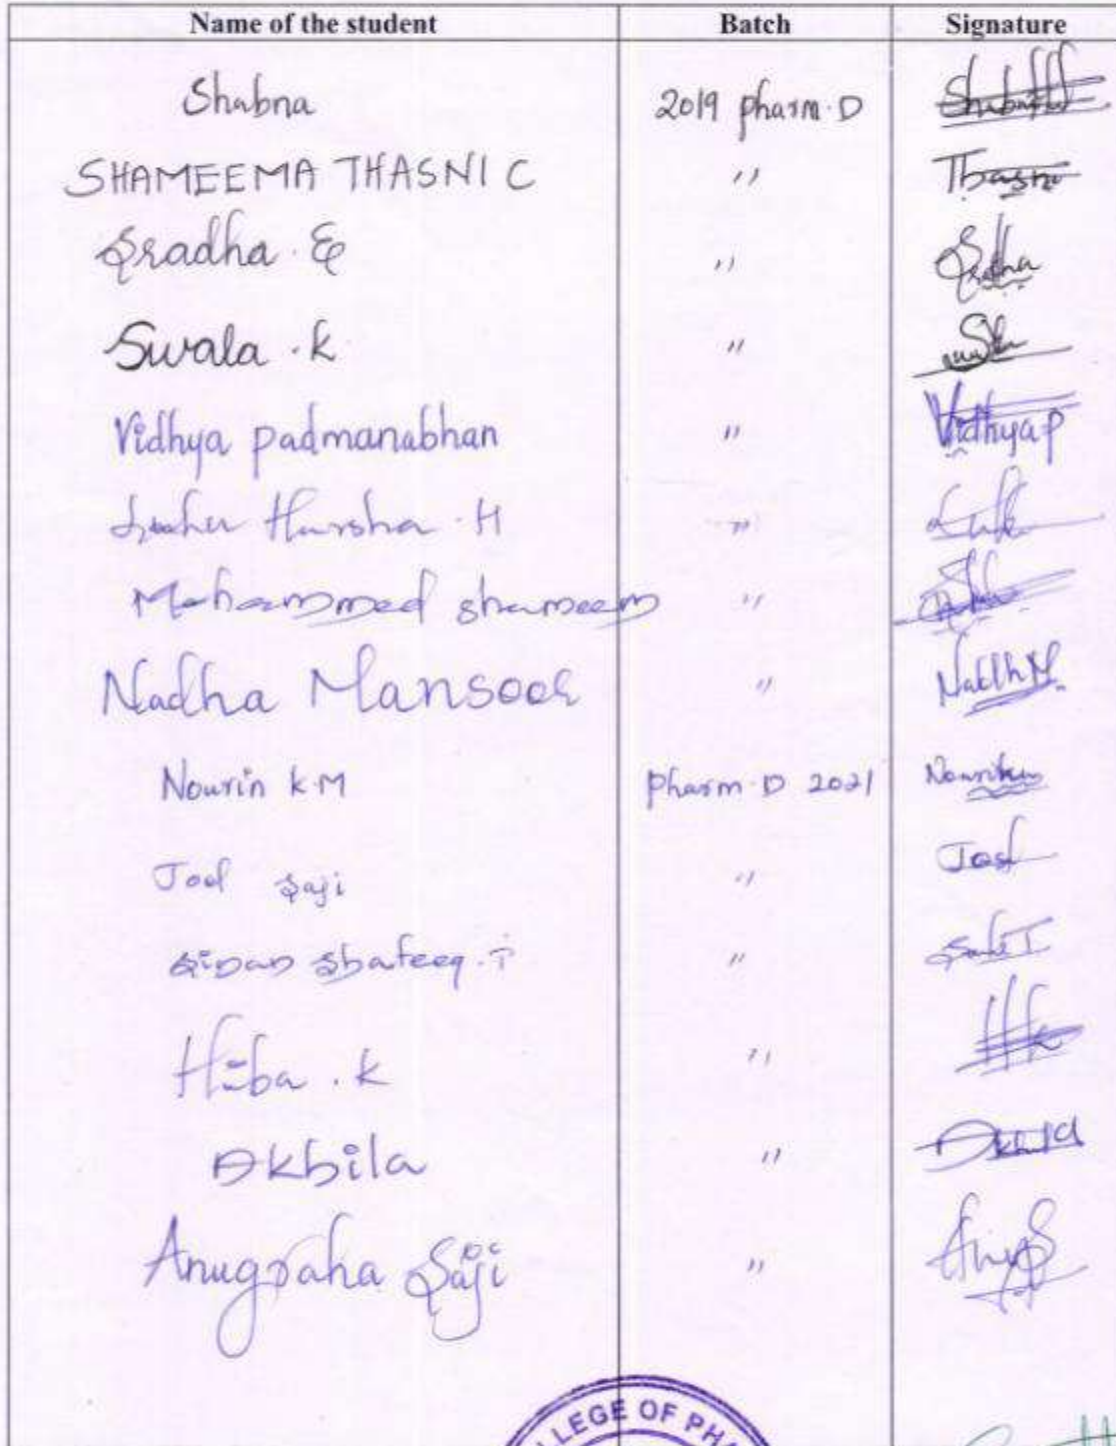 Name of the student Batch Signature
Shabna 2019 pharm.D
SHAMEEMA THASNI C " Thasni
Sradha. E " Sradha
Swala .K "
Vidhya padmanabhan " Vidhya P
Harsha . H "
Mohammed shameem "
Nadha Mansoor " Nadha M
Nourin K.M Pharm.D 2021
Joel Saji " Joel
Sinan Shafeeq. T "
Hiba . K "
Akhila " Akhila
Anugraha Saji "
LLEGE OF PHA